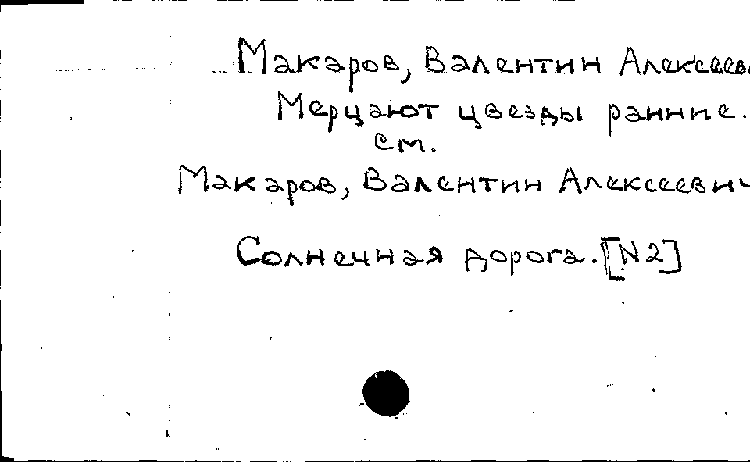 Макаров, Валентин Алексеев
Мерцают цвезды ранние.
см.
Макаров, Валентин Алексеевич
Солнечная дорога. [N2]